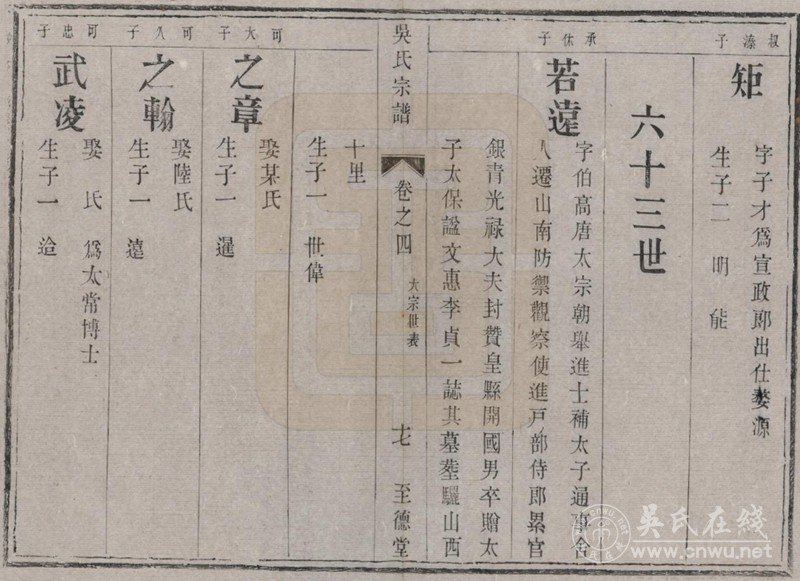 叔溱子
矩
字子才爲宣政郎出仕婺源
生子二 明 能
六十三世
承休子
若遠
字伯高唐太宗朝舉進士補太子通事舍
人遷山南防禦觀察使進戸部侍郎累官
銀青光禄大夫封贊皇縣開國男卒贈太
子太保謚文惠李貞一誌其墓塟驪山西
吳氏宗譜
卷之四
大宗世表
十七
至德堂
十里
生子一 世偉
可大子
之章
娶某氏
生子一 暹
可久子
之翰
娶陸氏
生子一 遠
可忠子
武凌
娶 氏 爲太常博士
生子一 迨
吴氏在线
www.cnwu.net